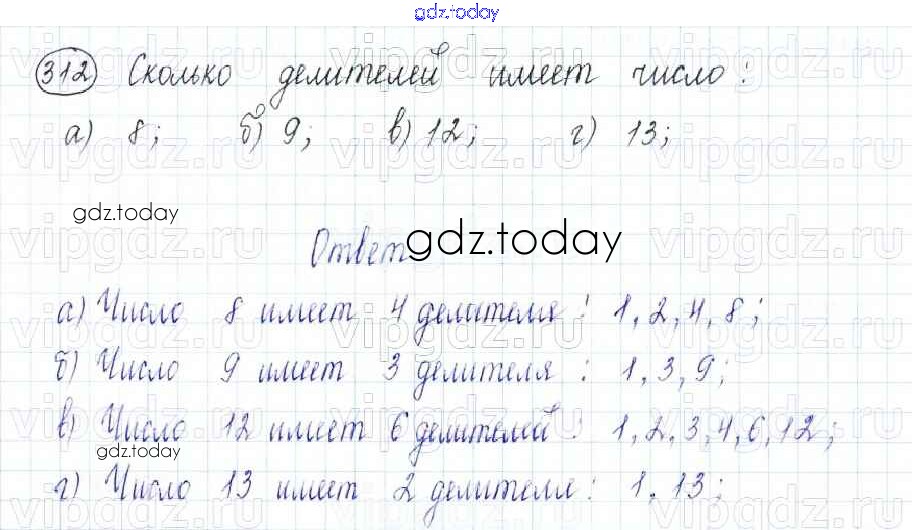 gdz.today
312 Сколько делителей имеет число:
а) 8; б) 9; в) 12; г) 13;
gdz.today
Ответ gdz.today
а) Число 8 имеет 4 делителя: 1, 2, 4, 8;
б) Число 9 имеет 3 делителя: 1, 3, 9;
в) Число 12 имеет 6 делителей: 1, 2, 3, 4, 6, 12;
gdz.today
г) Число 13 имеет 2 делителя: 1, 13;
vipgdz.ru